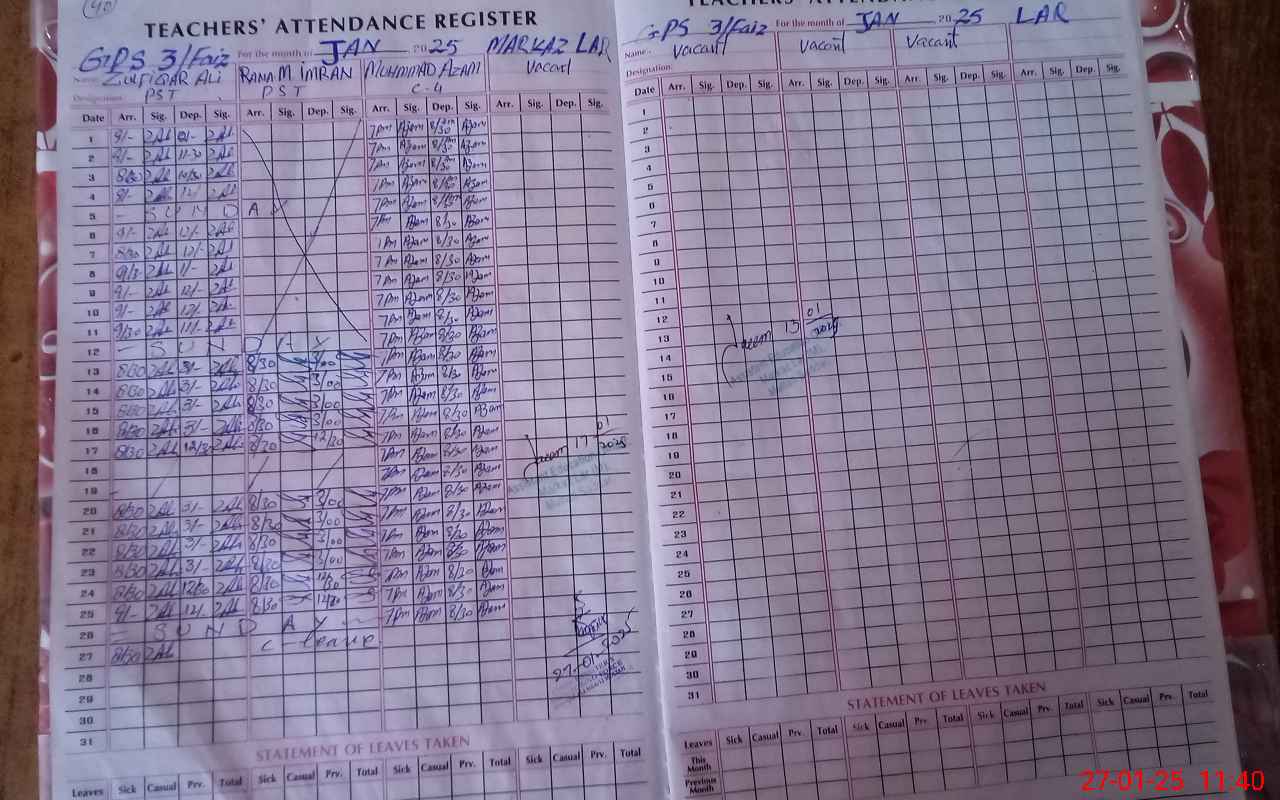 40
TEACHERS' ATTENDANCE REGISTER
GPS 3/Faiz For the month of JAN 2025 MARKAZ LAR
Name ZULFIQAR ALI RANA M. IMRAN MUHMMAD AZAM Vacant
Designation PST PST C-4
Date Arr. Sig. Dep. Sig. Arr. Sig. Dep. Sig. Arr. Sig. Dep. Sig. Arr. Sig. Dep. Sig.
1 9/- 7pm Azam 8/30 Azam
2 9/- 11-30 7pm Azam 8/30 Azam
3 8/30 10/30 7pm Azam 8/30 Azam
4 9/- 12/- 7pm Azam 8/30 Azam
5 - SUNDAY 7pm Azam 8/30 Azam
6 9/- 12/- 7pm Azam 8/30 Azam
7 8/30 12/- 7pm Azam 8/30 Azam
8 9/3 11/- 7pm Azam 8/30 Azam
9 9/- 12/- 7pm Azam 8/30 Azam
10 9/- 12/- 7pm Azam 8/30 Azam
11 9/30 12/- 7pm Azam 8/30 Azam
12 - SUNDAY 7pm Azam 8/30 Azam
13 8/30 3/- 8/30 3/00 7pm Azam 8/30 Azam
14 8/30 3/- 8/30 3/00 7pm Azam 8/30 Azam
15 8/30 3/- 8/30 3/00 7pm Azam 8/30 Azam
16 8/30 3/- 8/30 3/00 7pm Azam 8/30 Azam
17 8/30 12/30 8/30 12/30 7pm Azam 8/30 Azam 17 01 2025
18 7pm Azam 8/30 Azam
19 7pm Azam 8/30 Azam
20 8/30 3/- 8/30 3/00 7pm Azam 8/30 Azam
21 8/30 3/- 8/30 3/00 7pm Azam 8/30 Azam
22 8/30 3/- 8/30 3/00 7pm Azam 8/30 Azam
23 8/30 3/- 8/30 3/00 7pm Azam 8/30 Azam
24 8/30 12/30 8/30 12/30 7pm Azam 8/30 Azam
25 9/- 12/- 8/30 12/30 7pm Azam 8/30 Azam
26 - SUNDAY -
27 8/30 C-leave
28 27-01-2025
29
30
31
STATEMENT OF LEAVES TAKEN
Leaves Sick Casual Prv. Total Sick Casual Prv. Total Sick Casual Prv. Total Sick Casual Prv. Total
TEACHERS' ATTENDANCE
GPS 3/Faiz For the month of JAN 2025 LAR
Name Vacant Vacant Vacant
Designation
Date Arr. Sig. Dep. Sig. Arr. Sig. Dep. Sig. Arr. Sig. Dep. Sig. Arr. Sig. Dep. Sig.
1
2
3
4
5
6
7
8
9
10
11
12
13 13 01 2025
14
15
16
17
18
19
20
21
22
23
24
25
26
27
28
29
30
31
STATEMENT OF LEAVES TAKEN
Leaves Sick Casual Prv. Total Sick Casual Prv. Total Sick Casual Prv. Total Sick Casual Prv. Total
This Month
Previous Month
27-01-25 11:40